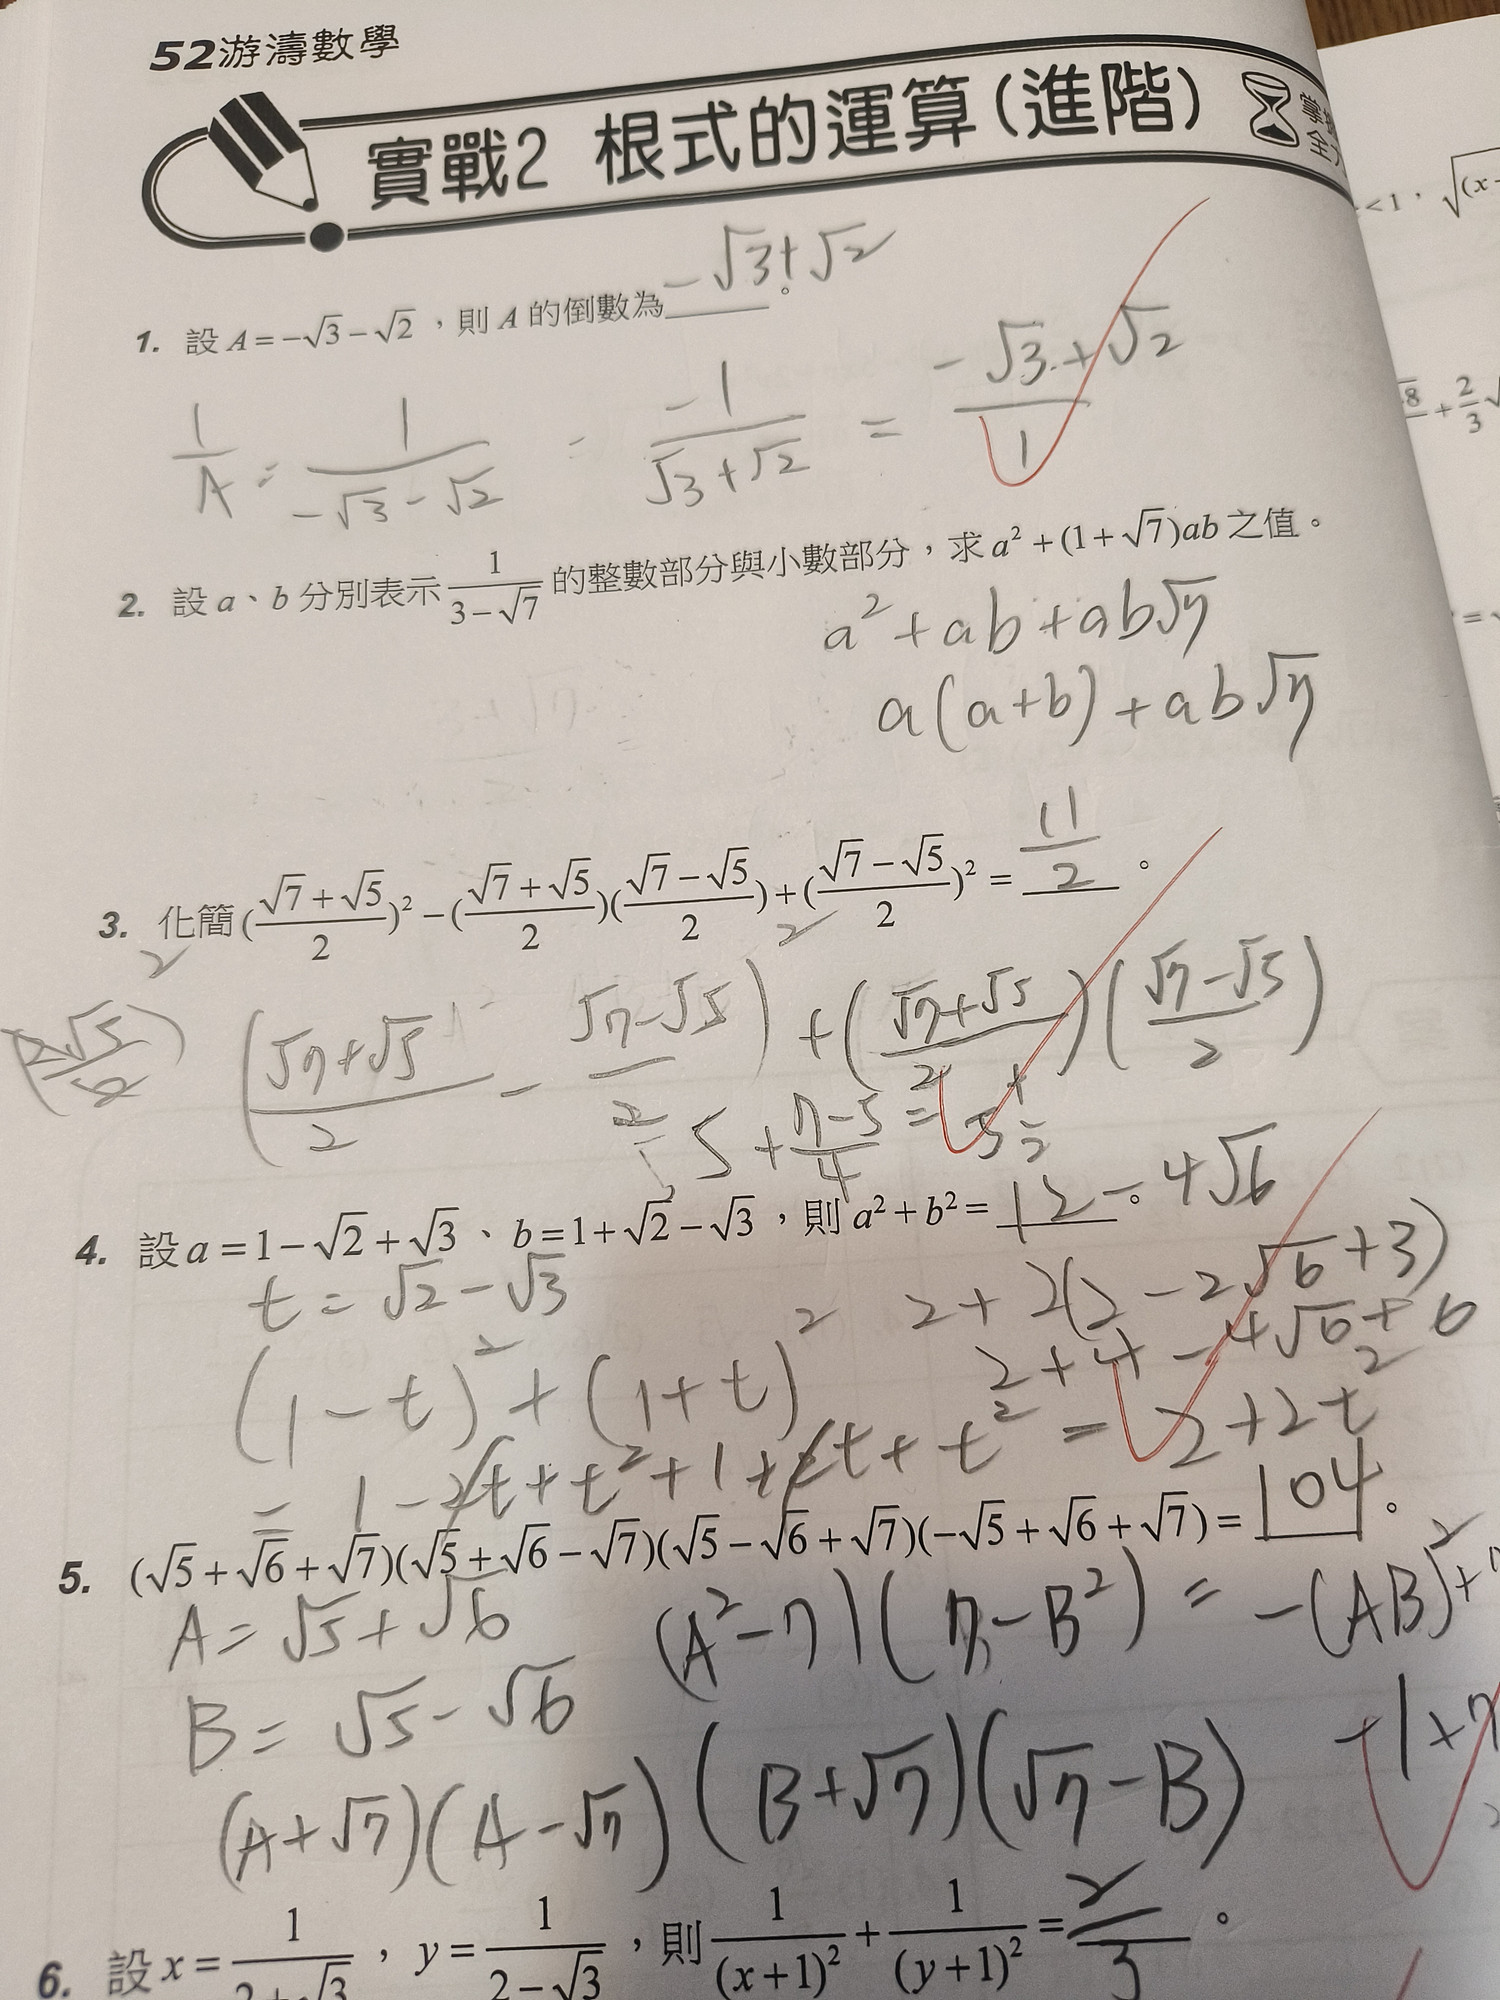 52游濤數學
實戰2 根式的運算(進階)
1. 設A=-√3-√2，則A的倒數為-√3+√2。
1/A = 1/(-√3-√2) = -1/(√3+√2) = (-√3+√2)/1
2. 設a、b分別表示 1/(3-√7) 的整數部分與小數部分，求a²+(1+√7)ab之值。
a²+ab+ab√7
a(a+b)+ab√7
3. 化簡((√7+√5)/2)²-((√7+√5)/2)((√7-√5)/2)+((√7-√5)/2)²= 11/2 。
((√7+√5)/2 - (√7-√5)/2)² + ((√7+√5)/2)((√7-√5)/2)
= 5+(7-5)/4 = 5 1/2
4. 設a=1-√2+√3、b=1+√2-√3，則a²+b²= 12-4√6 。
t=√2-√3
2+2(2-2√6+3)
2+4-4√6+6
(1-t)²+(1+t)²
= 1-2t+t²+1+2t+t² = 2+2t²
5. (√5+√6+√7)(√5+√6-√7)(√5-√6+√7)(-√5+√6+√7)= 104 。
A=√5+√6
(A²-7)(7-B²) = -(AB)²+7
B=√5-√6
-1+7
(A+√7)(A-√7)(B+√7)(√7-B)
6. 設x= 1/(2+√3)，y= 1/(2-√3)，則 1/(x+1)² + 1/(y+1)² = 2/3 。